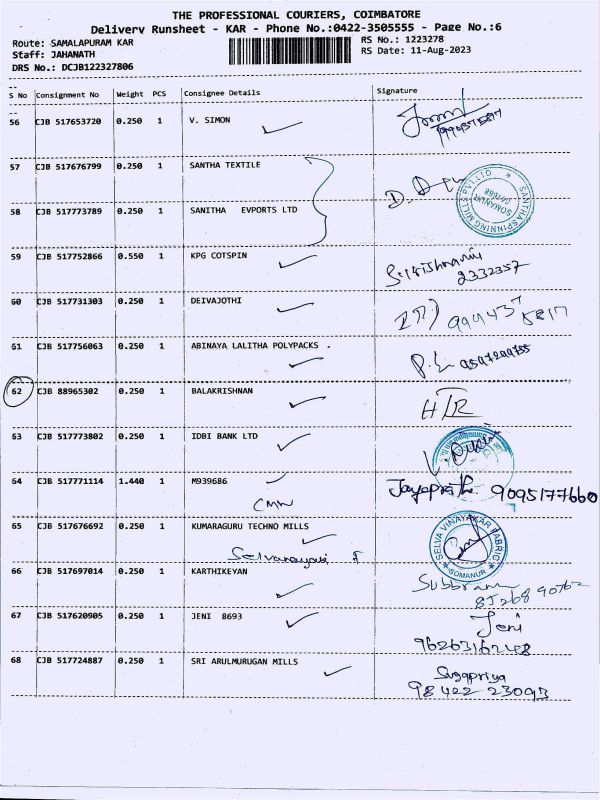 THE PROFESSIONAL COURIERS, COIMBATORE
Delivery Runsheet - KAR - Phone No.:0422-3505555 - Page No.:6
Route: SAMALAPURAM KAR
RS No.: 1223278
Staff: JAHANATH
RS Date: 11-Aug-2023
DRS No.: DCJB122327806
S No Consignment No Weight PCS Consignee Details Signature
56 CJB 517653720 0.250 1 V. SIMON
57 CJB 517676799 0.250 1 SANTHA TEXTILE
58 CJB 517773789 0.250 1 SANITHA EVPORTS LTD
SANTHA SPINNING MILLS
SOMANUR
641668
59 CJB 517752866 0.550 1 KPG COTSPIN
2332357
60 CJB 517731303 0.250 1 DEIVAJOTHI
61 CJB 517756063 0.250 1 ABINAYA LALITHA POLYPACKS .
62 CJB 88965302 0.250 1 BALAKRISHNAN
63 CJB 517773802 0.250 1 IDBI BANK LTD
64 CJB 517771114 1.440 1 M939686 Jayaprithe 9095177660
65 CJB 517676692 0.250 1 KUMARAGURU TECHNO MILLS
SELVA VINAYAKAR FABRIC
SOMANUR
66 CJB 517697014 0.250 1 KARTHIKEYAN
67 CJB 517620905 0.250 1 JENI 8693 Jeni
68 CJB 517724887 0.250 1 SRI ARULMURUGAN MILLS Sugapriya
98422 23093